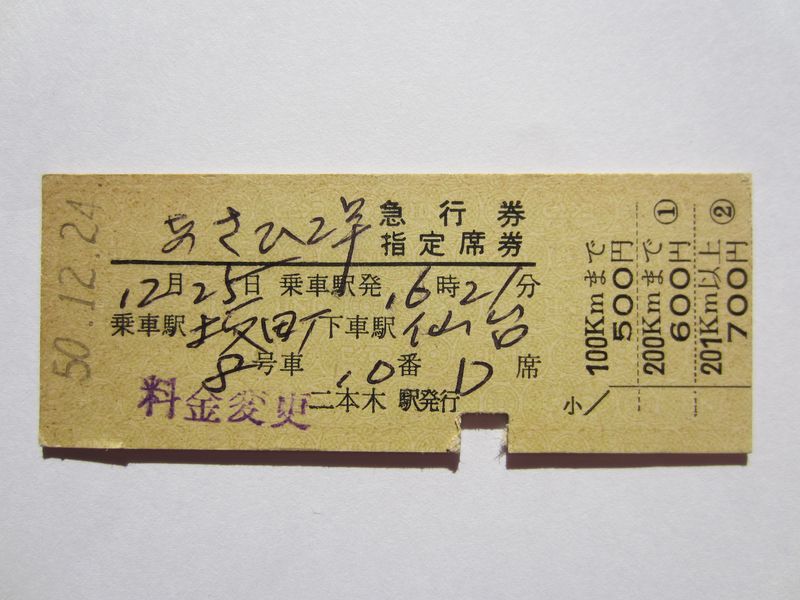 50.12.24
あさひ2号 急行券
指定席券
12月25日 乗車駅発16時21分
乗車駅坂町下車駅仙台
8号車10番D席
料金変更
二本木 駅発行
小
100Kmまで
500円
200Kmまで ①
600円
201Km以上 ②
700円